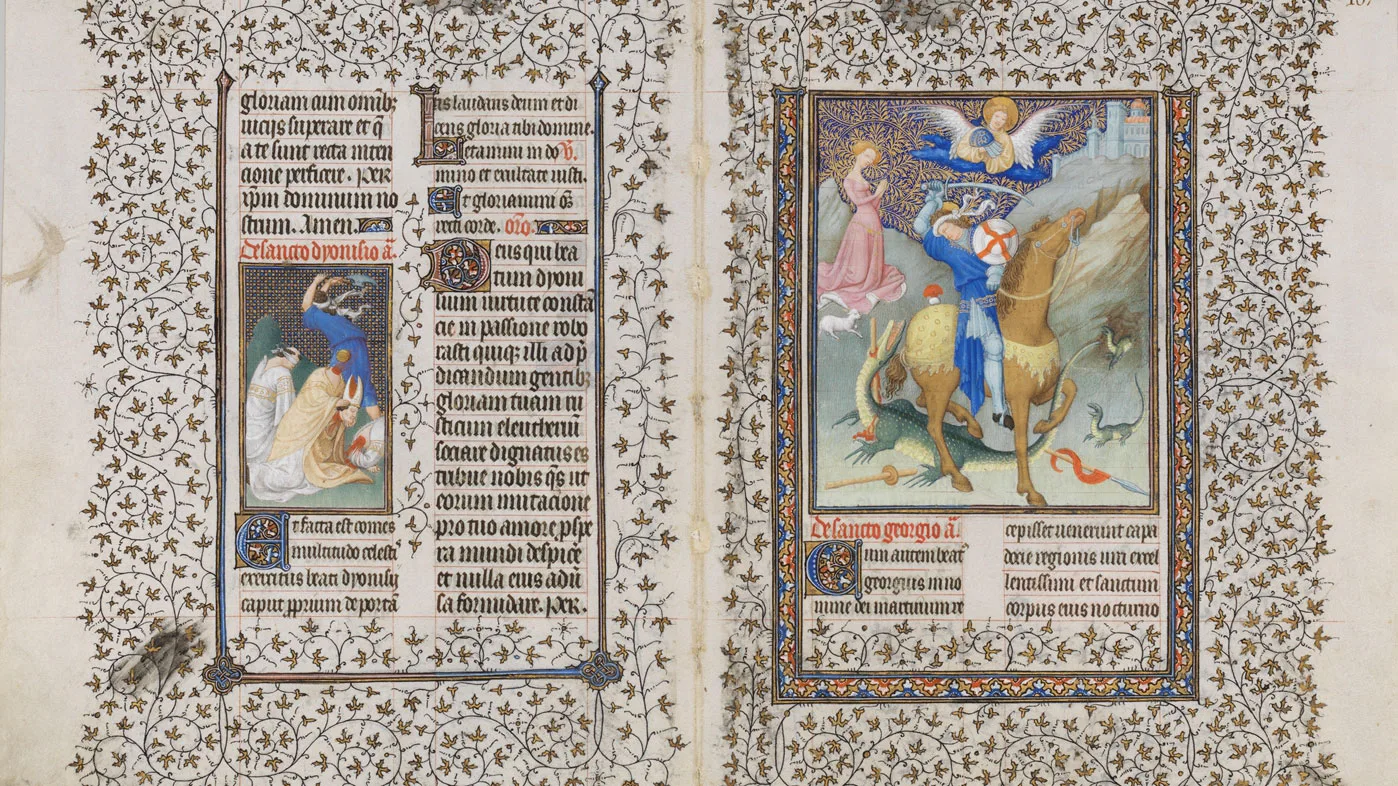 gloriam cum omnib;
uicijs superare et q̄
a te sunt recta inten
cione perficere. Per
xpm dominum no
strum. Amen.
De sancto dyonisio añ.
Et facta est comes
multitudo celesti
exercitus beati dyonisij
caput pprium deportā
tis laudans deum et di
cens gloria tibi domine.
Letamini in do V.
mino et exultate iusti.
Et gloriamini oēs
recti corde. oro.
Deus qui bea
tum dyoni
sium uirtute consta
cie in passione robo
rasti quiq; illi ad p̄
dicandum gentib;
gloriam tuam ru
sticum eleutheriū
sociare dignatus es
tribue nobis q̄s ut
eorum imitacione
pro tuo amore pspe
ra mundi despice
re et nulla eius aduer
sa formidare. Per.
167
De sancto georgio añ.
Cum autem beat9
georgius in no
mine dei martirium re
cepisset uenerunt capa
doxie regionis uiri excel
lentissimi et sanctum
corpus eius nocturno